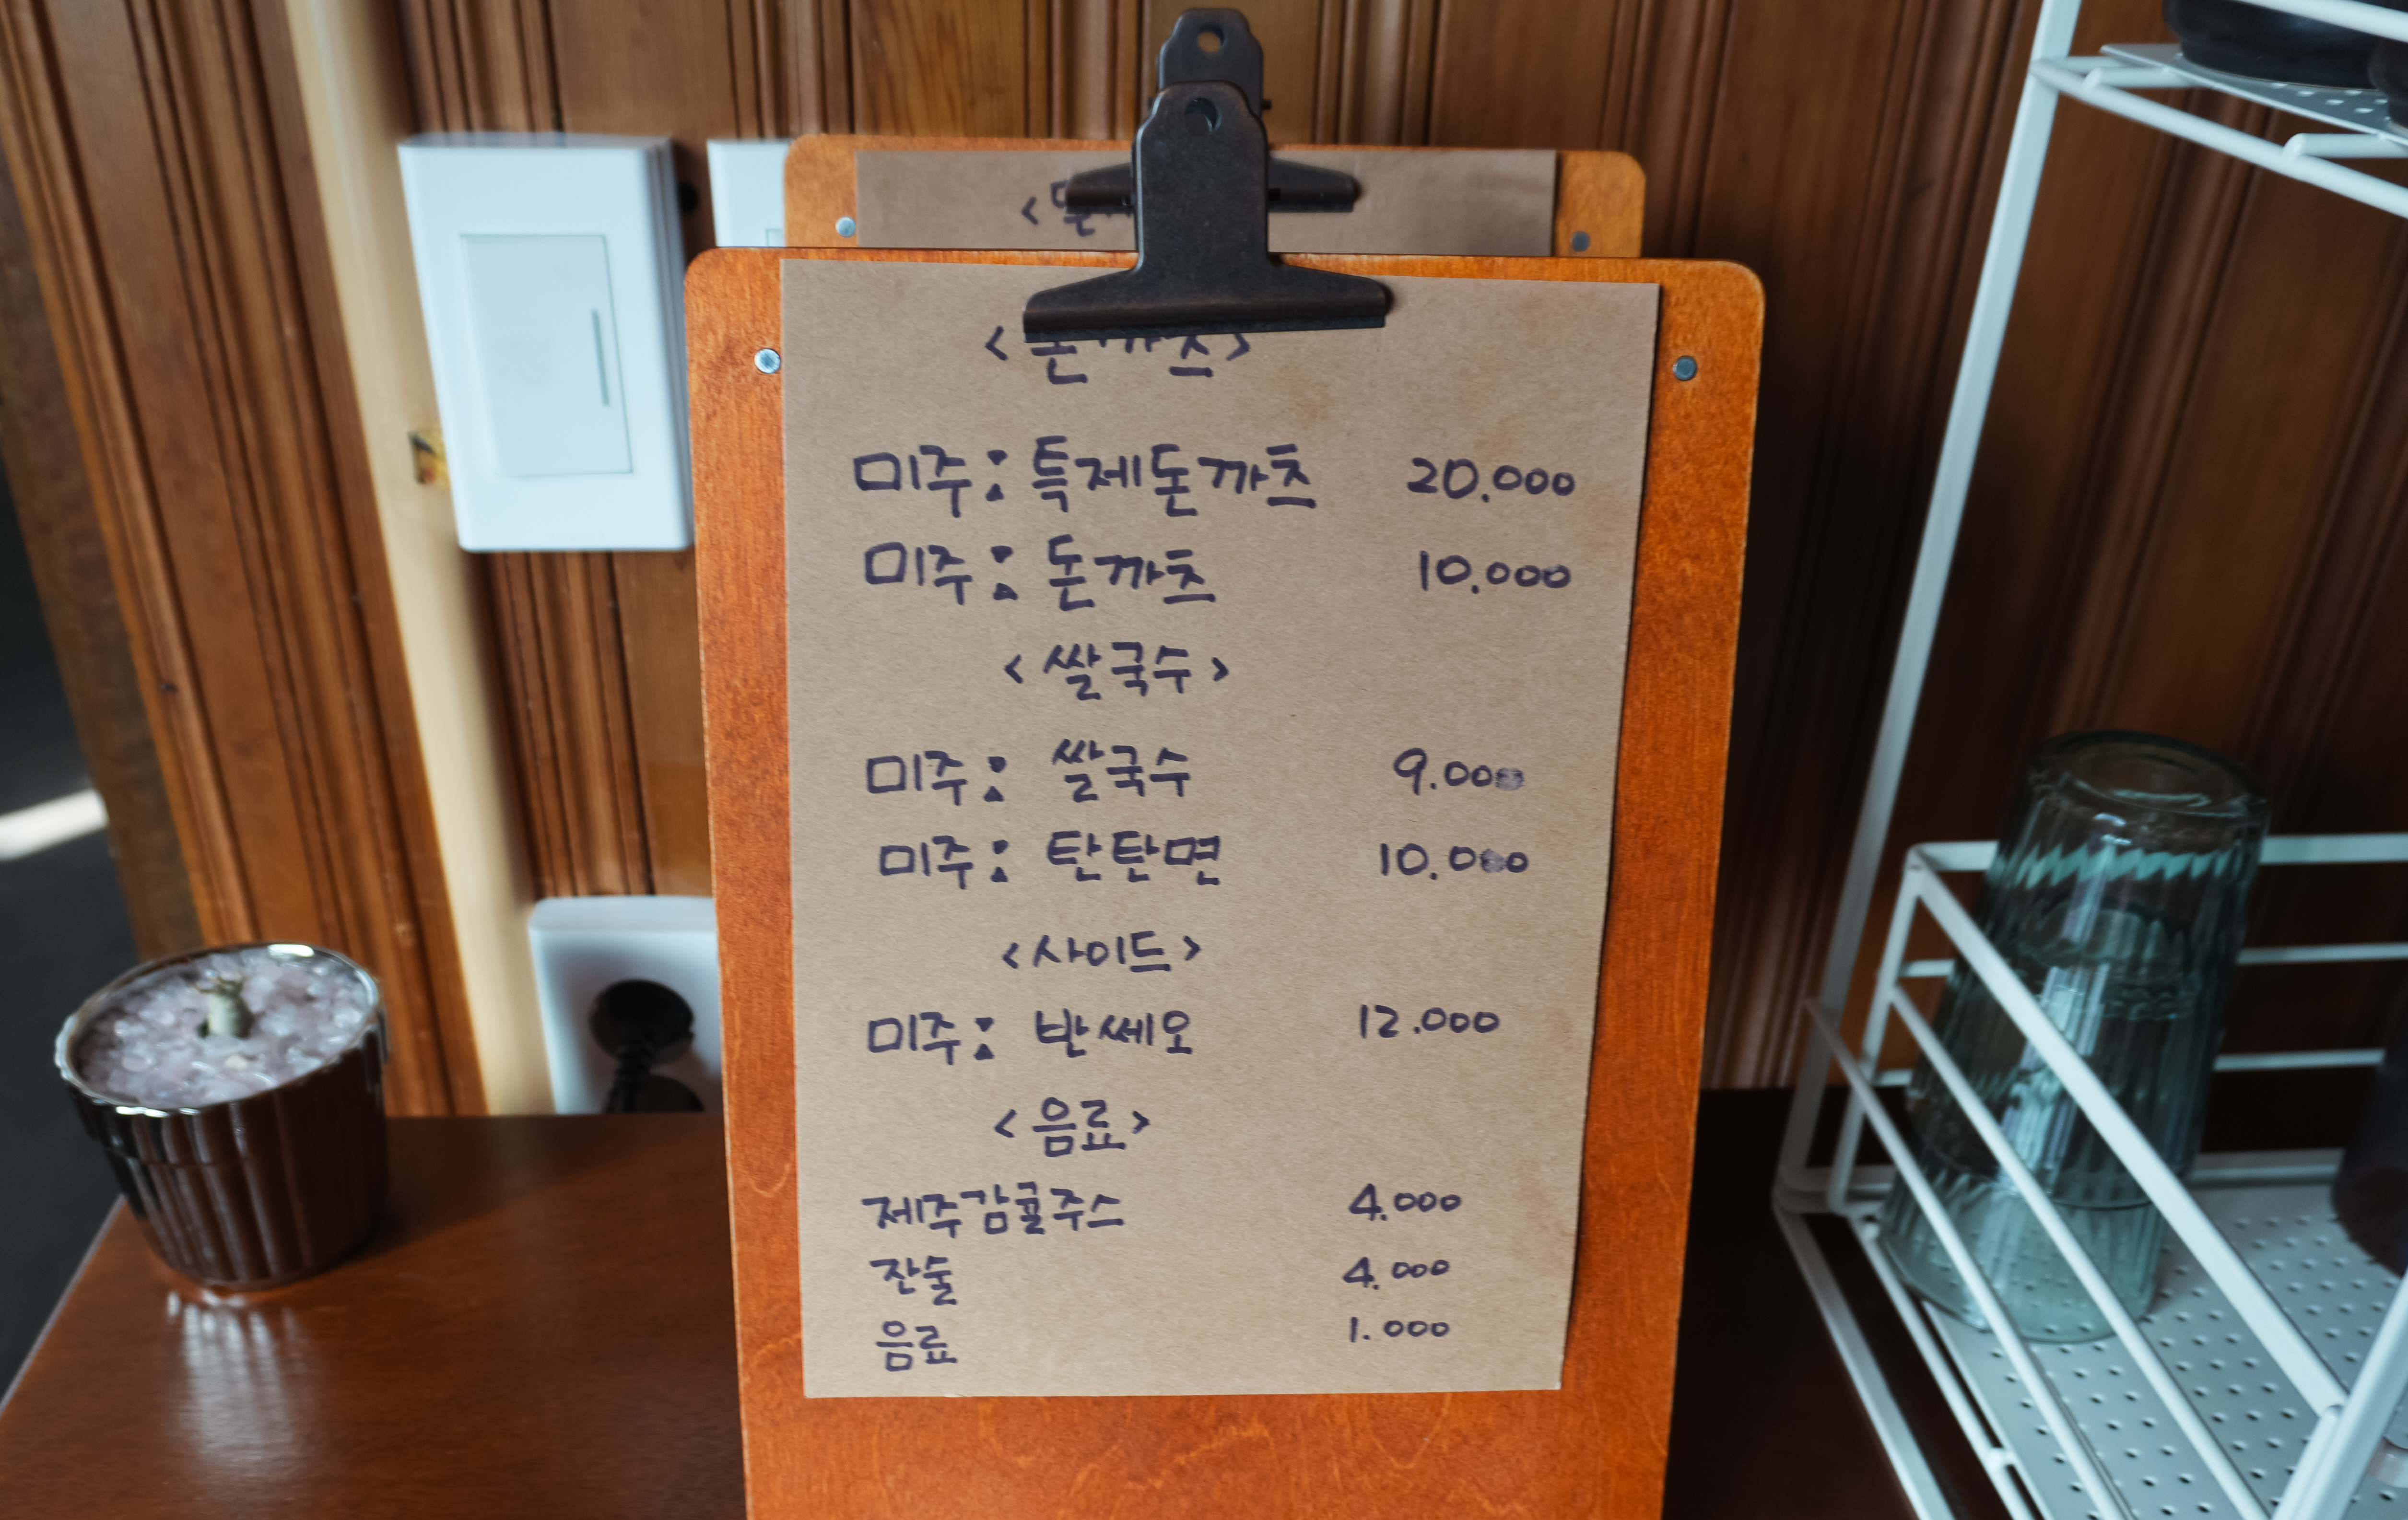 <돈까츠>
미주: 특제돈까츠 20.000
미주: 돈까츠 10.000
<쌀국수>
미주: 쌀국수 9.000
미주: 탄탄면 10.000
<사이드>
미주: 반쎄오 12.000
<음료>
제주감귤주스 4.000
잔술 4.000
음료 1.000